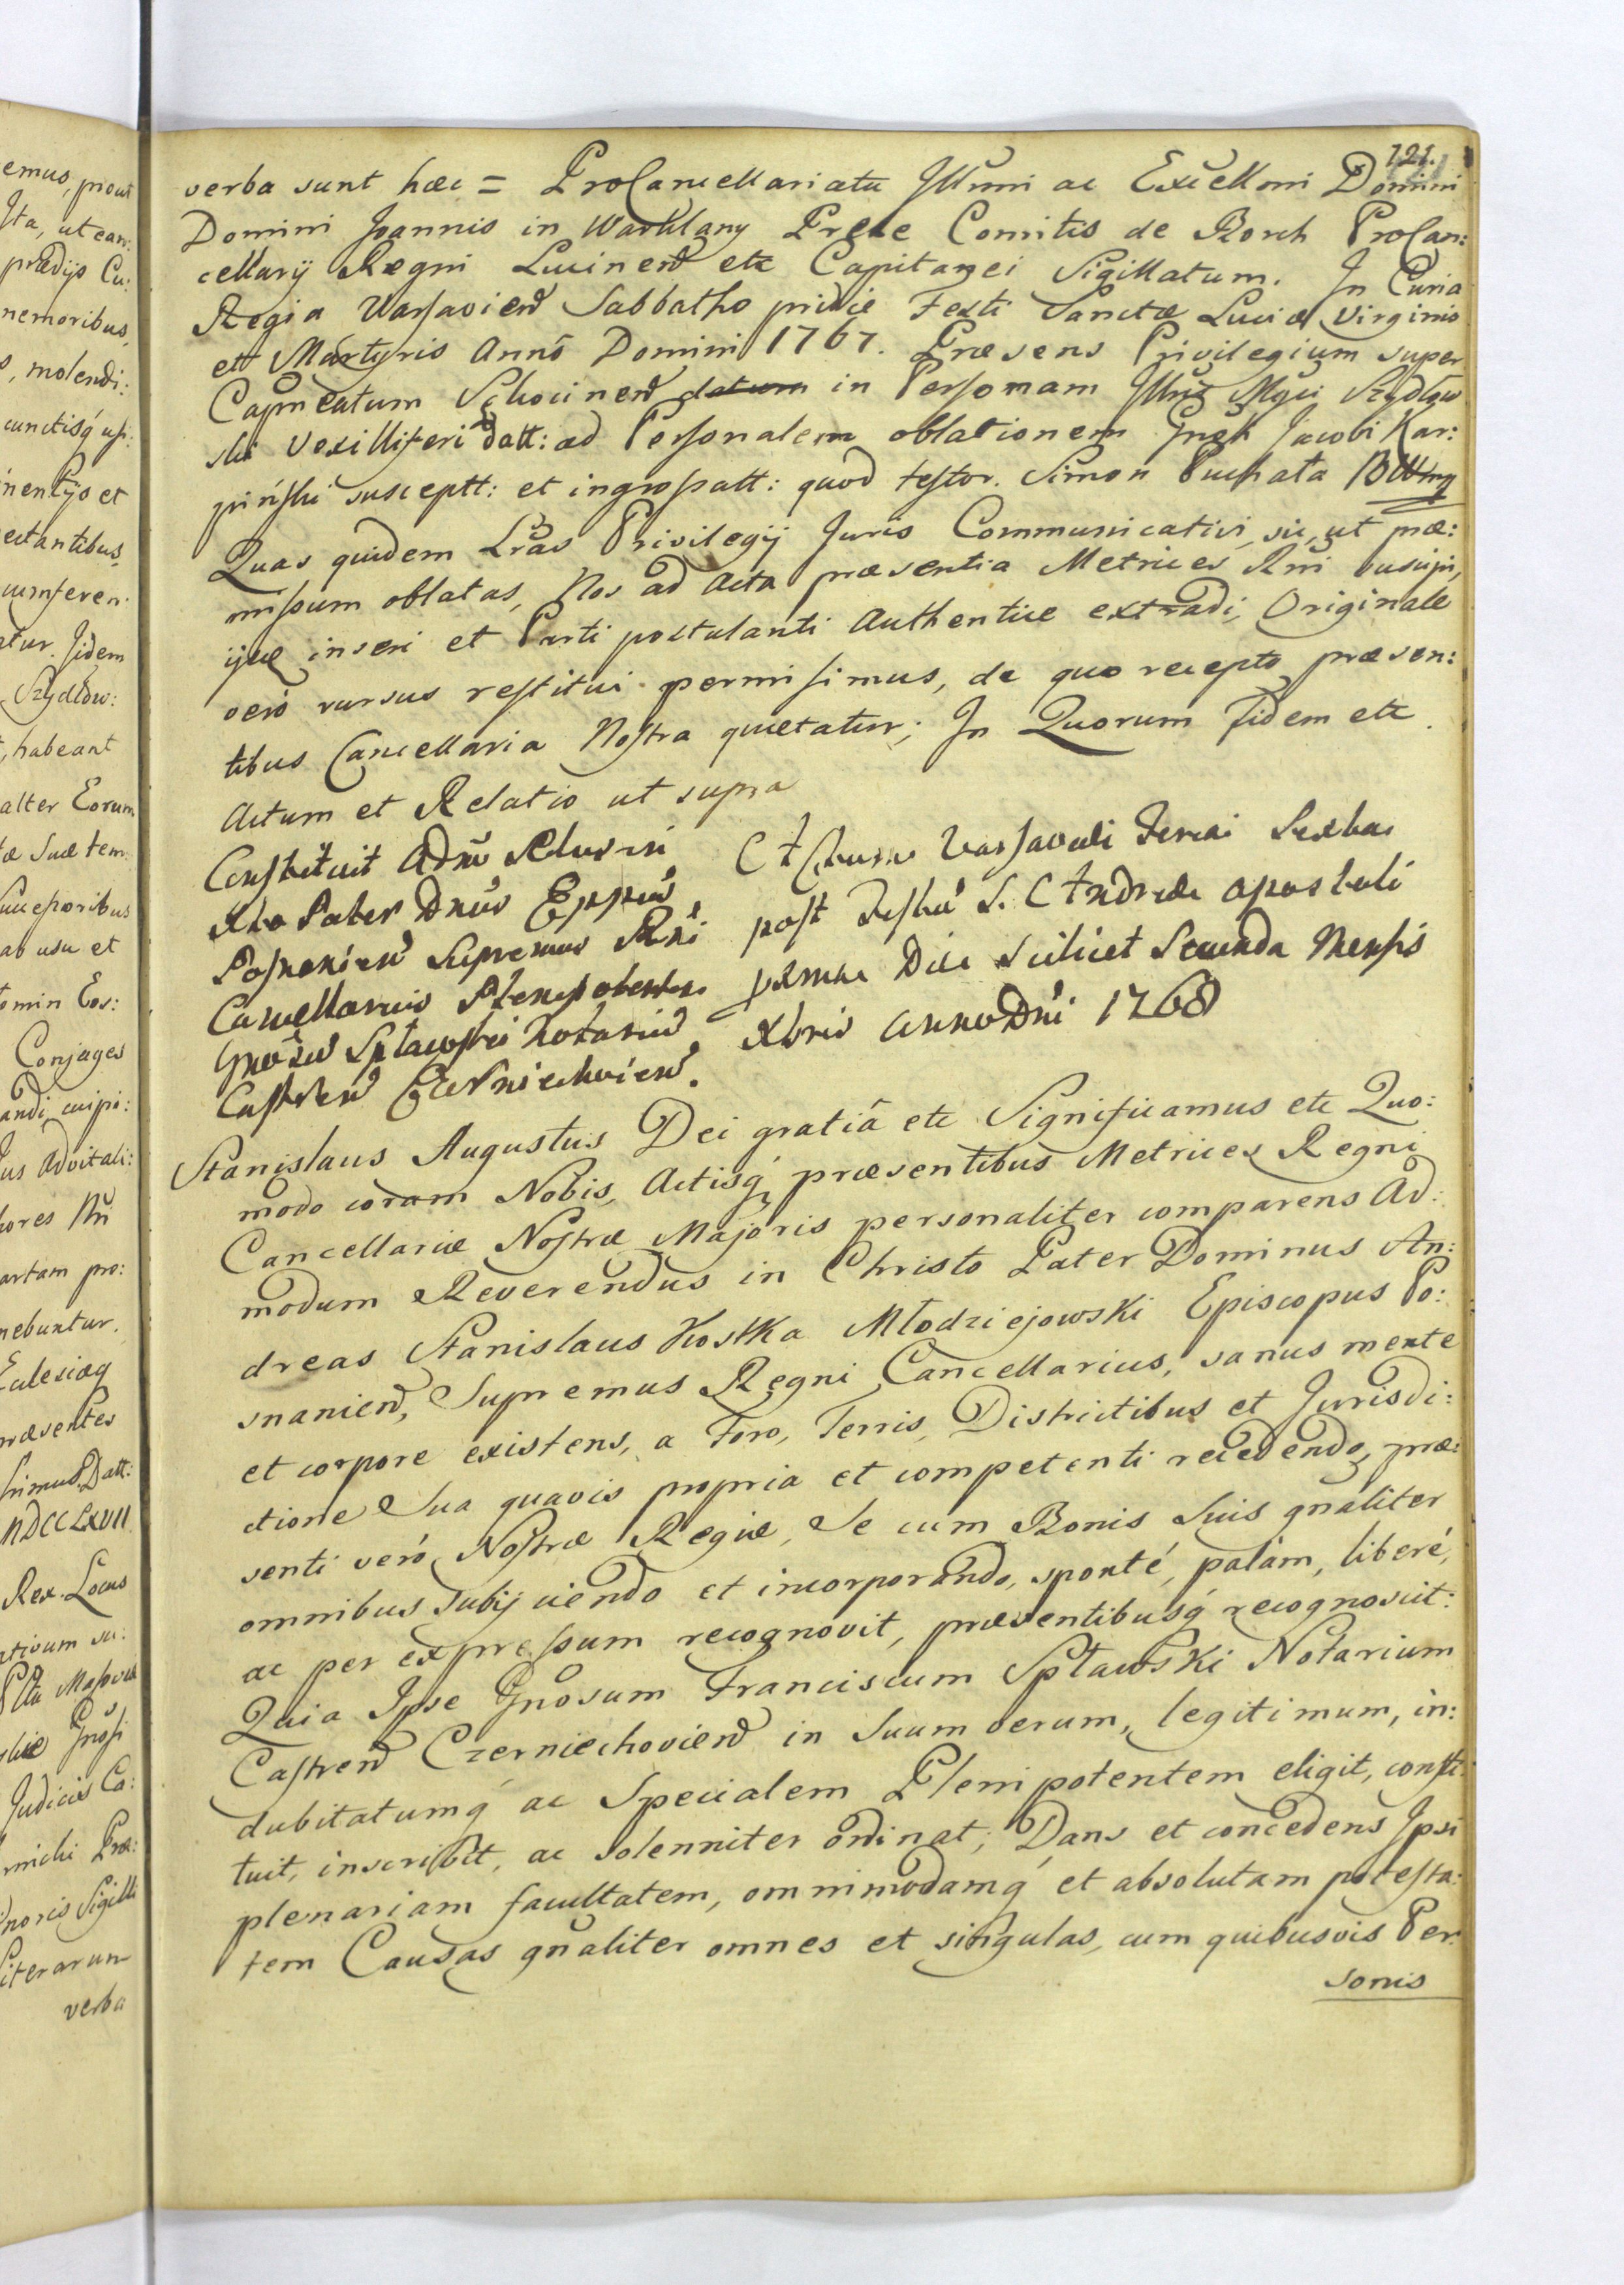 emus, prout
Ita, ut ean:
prædijs Cu:
nemoribus,
s, molendi:
cunctisq́ usi:
nentijs et
ectantibus,
cumferen:
atur. Iidem
Szydłow:
t, habeant
alter Eorum
æ suæ tem:
Succeſsoribus
ab usu et
omin Eos:
Conjuges
andi cuipi:
Jus Advitali:
artam pro:
nebuntur.
Ecclesiæq́
præsentes
Datt:
MDCCLXVII
Rex. Locus
Judicis Ca:
noris Sigilli
Literarum
verba
121.
verba sunt hæc = ProCancellariatu Illm̃i ac Excellm̃i Domini
Domini Joannis in Warklany Prele Comitis de Borch ProCan:
cellarij Regni Lucineñ etc Capitanei Sigillatum. In Curia
Regia Varſavieñ Sabbatho pridie Festi Sanctæ Luciæ Virginis
et Martyris Annõ Domini 1767. Præsens Privilegium super
Capneatum Schocineñ datum in Perſonam Szydłow
ski Vexilliferi datt: ad Perſonalem oblationem Jacobi Kar:
pińſki susceptt: et ingroſsatt: quod teſtor. Simon Puchała
Quas quidem Lr̃as Privilegij Juris Communicativi, sic, ut præ:
miſsum oblatas, Nos ad Acta præsentia Metrices Rñi suscipi,
ijsq inseri et Parti postulanti Authentice extradi, Originale
verò rursus reſtitui permiſimus, de quo recepto præsen:
tibus Cancellaria Noſtra quietatur; In Quorum fidem etc.
Actum et Relatio ut supra
Conſtituit Adm̃ Rdus in
Xto Pater Dnus Eppus
Poſnanieñ Supremus Rñi
Cancellarius Plenipotentem
Gnoſum Spławſki Notarium
Caſtreñ Czerniechovieñ.
Actum Varſaviæ Feria Sexta
post Feſtum S. Andreæ Apostoli
prima Die scilicet Secunda Menſis
Xbris Anno Dñi 1768
Stanislaus Augustus Dei gratiâ etc Significamus etc Quo:
modo coram Nobis, Actisq́ præsentibus Metrices Regni
Cancellariæ Noſtræ Majoris personaliter comparens Ad:
modum Reverendus in Christo Pater Dominus An:
dreas Stanislaus Kostka Młodziejowski Episcopus Po:
snanieñ, Supremus Regni Cancellarius, sanus mente
et corpore existens, a Foro, Terris, Districtibus et Jurisdi:
ctione Sua quavis propria et competenti recedendo, præ:
senti verò Noſtræ Regiæ, Se cum Bonis Suis gnaliter
omnibus Subijciendo et incorporando, sponté, palàm, liberé,
ac per expreſsum recognovit, præsentibusq́ recognoscit:
Quia Ipse Gnosum Franciscum Spławski Notarium
Caſtreñ Czerniechovieñ in Suum verum, legitimum, in:
dubitatumq́ ac Specialem Plenipotentem eligit, conſti:
tuit, inscribit, ac solenniter ordinat; Dans et concedens Ipsi
plenariam facultatem, omnimodamq́ et absolutam poteſta:
tem Causas gnaliter omnes et singulas, cum quibusvis Per:
sonis